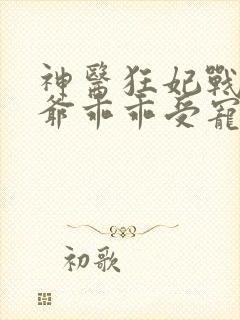 神醫狂妃戰
爺乖乖受寵
初歌